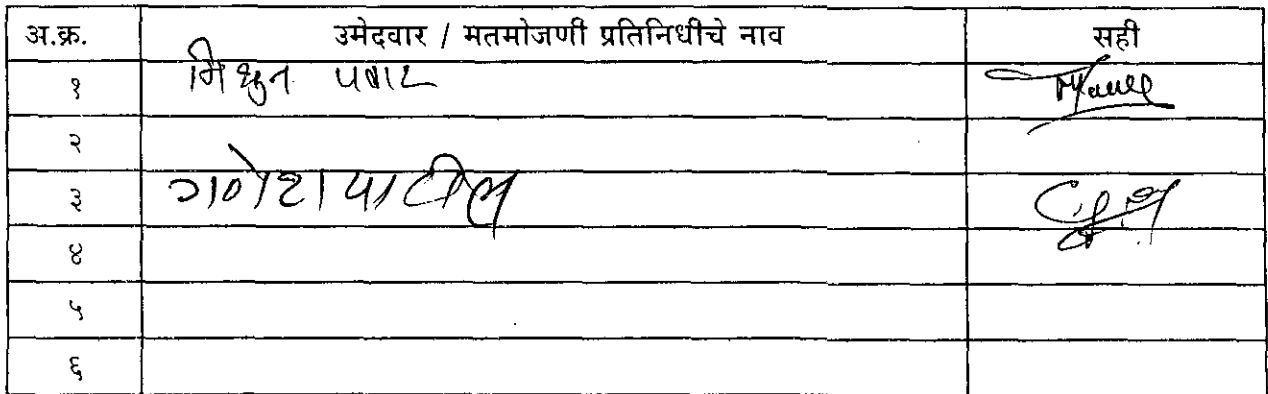 अ.क्र. उमेदवार / मतमोजणी प्रतिनिधीचे नाव सही
१ मिथुन पवार
२
३ गणेश पाटील
४
५
६